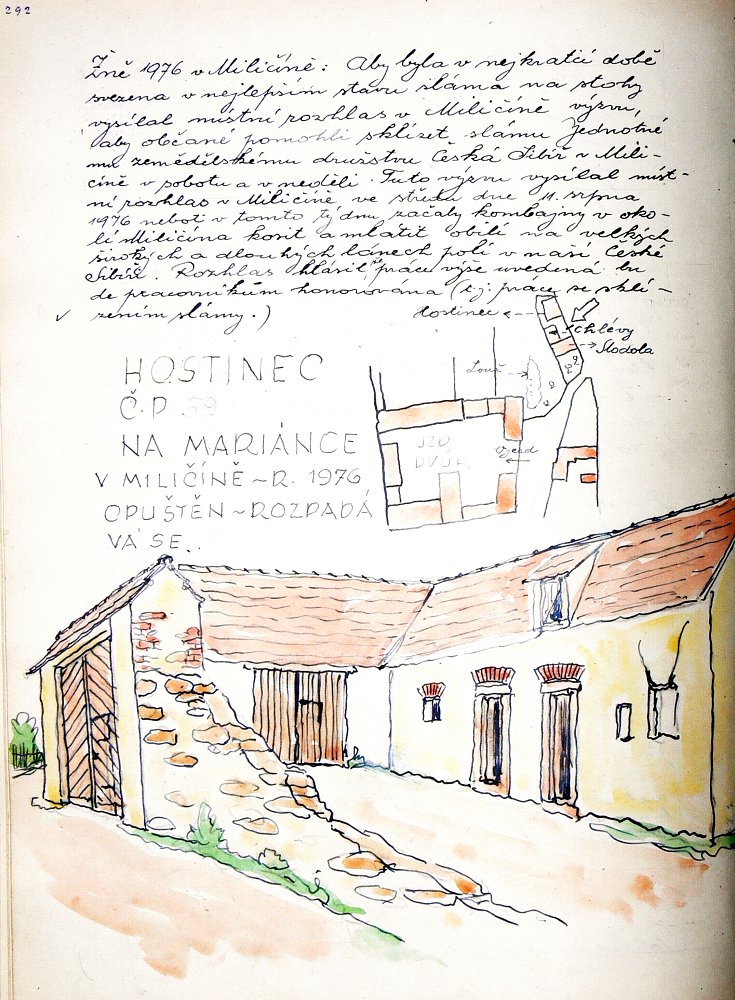 292
Žně 1976 v Miličíně: Aby byla v nejkratší době
svezena v nejlepším stavu sláma na stohy
vysílal místní rozhlas v Miličíně výzvu,
aby občané pomohli sklízet slámu Jednotné
mu zemědělskému družstvu Česká Sibiř v Mili-
číně v sobotu a v neděli. Tuto výzvu vysílal míst-
ní rozhlas v Miličíně, ve středu dne 11. srpna
1976 neboť v tomto týdnu začaly kombajny v oko-
lí Miličína kosit a mlátit obilí na velkých
širokých a dlouhých lánech polí v naší České
Sibiři. Rozhlas hlásil "práce výše uvedená bu
de pracovníkům honorována (t.j. práce se sklí-
zením slámy.)
Hostinec
Chlévy
Stodola
Louž
HOSTINEC
Č.P. 59
NA MARIÁNCE
V MILIČÍNĚ ~ R. 1976
OPUŠTĚN ~ ROZPADÁ
VÁ SE..
JZD
DVŮR
Vjezd